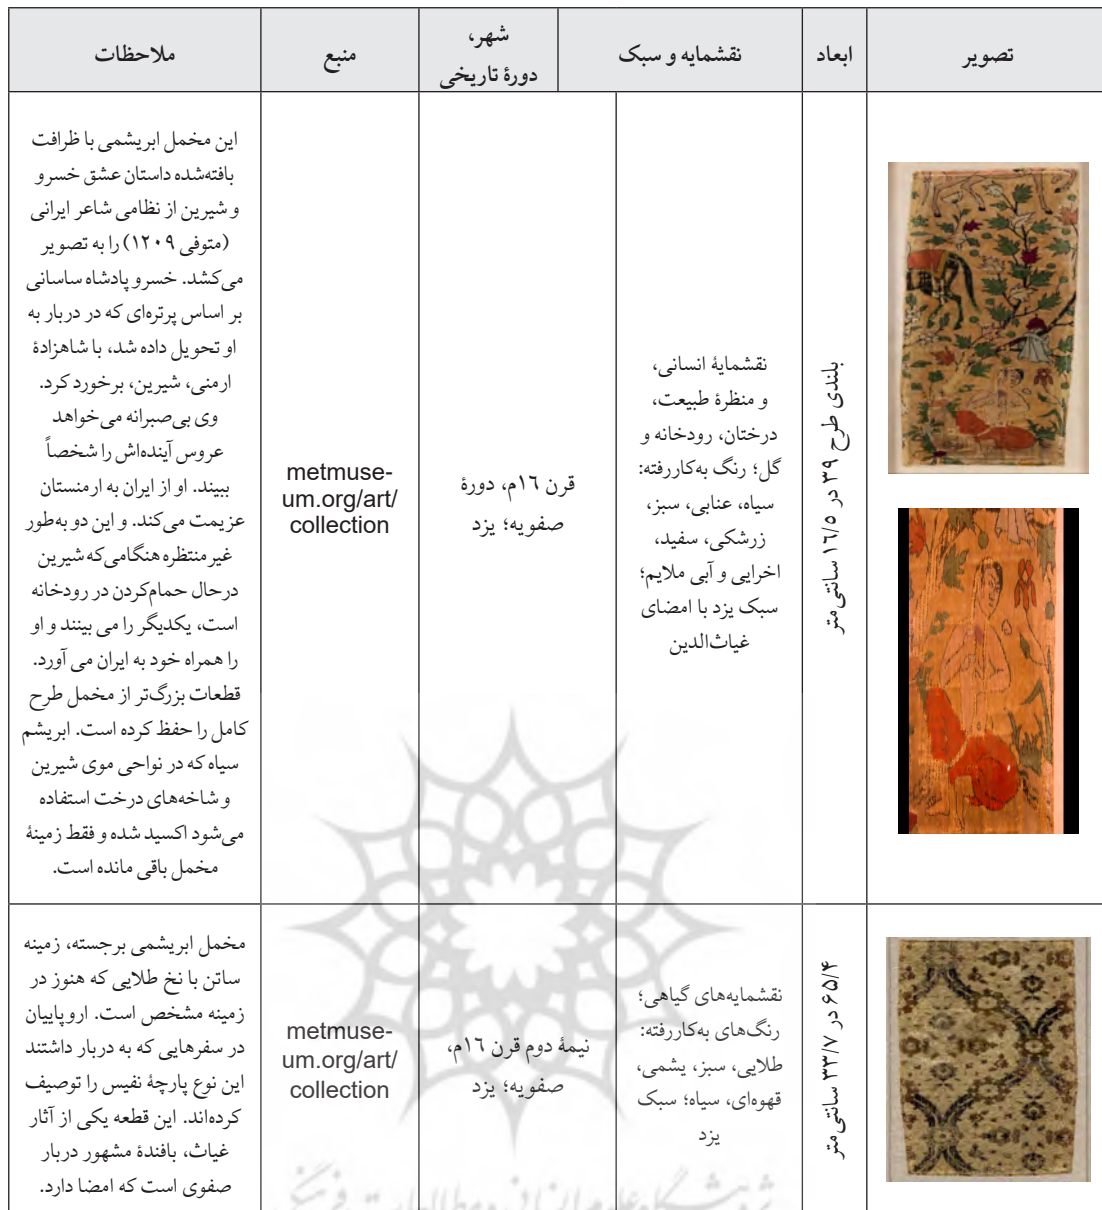 تصویر
ابعاد
نقشمایه و سبک
شهر،
دورهٔ تاریخی
منبع
ملاحظات
بلندی طرح ۳۹ در ۱۶/۵ سانتی‌متر
نقشمایهٔ انسانی،
و منظرهٔ طبیعت،
درختان، رودخانه و
گل؛ رنگ به‌کاررفته:
سیاه، عنابی، سبز،
زرشکی، سفید،
اخرایی و آبی ملایم؛
سبک یزد با امضای
غیاث‌الدین
قرن ۱۶م، دورهٔ
صفویه؛ یزد
metmuse-
um.org/art/
collection
این مخمل ابریشمی با ظرافت
بافته‌شده داستان عشق خسرو
و شیرین از نظامی شاعر ایرانی
(متوفی ۱۲۰۹) را به تصویر
می‌کشد. خسرو پادشاه ساسانی
بر اساس پرتره‌ای که در دربار به
او تحویل داده شد، با شاهزادهٔ
ارمنی، شیرین، برخورد کرد.
وی بی‌صبرانه می‌خواهد
عروس آینده‌اش را شخصاً
ببیند. او از ایران به ارمنستان
عزیمت می‌کند. و این دو به‌طور
غیرمنتظره هنگامی‌که شیرین
درحال حمام‌کردن در رودخانه
است، یکدیگر را می بینند و او
را همراه خود به ایران می آورد.
قطعات بزرگ‌تر از مخمل طرح
کامل را حفظ کرده است. ابریشم
سیاه که در نواحی موی شیرین
و شاخه‌های درخت استفاده
می‌شود اکسید شده و فقط زمینهٔ
مخمل باقی مانده است.
۶۵/۴ در ۳۳/۷ سانتی‌متر
نقشمایه‌های گیاهی؛
رنگ‌های به‌کاررفته:
طلایی، سبز، یشمی،
قهوه‌ای، سیاه؛ سبک
یزد
نیمهٔ دوم قرن ۱۶م،
صفویه؛ یزد
metmuse-
um.org/art/
collection
مخمل ابریشمی برجسته، زمینه
ساتن با نخ طلایی که هنوز در
زمینه مشخص است. اروپاییان
در سفرهایی که به دربار داشتند
این نوع پارچهٔ نفیس را توصیف
کرده‌اند. این قطعه یکی از آثار
غیاث، بافندهٔ مشهور دربار
صفوی است که امضا دارد.